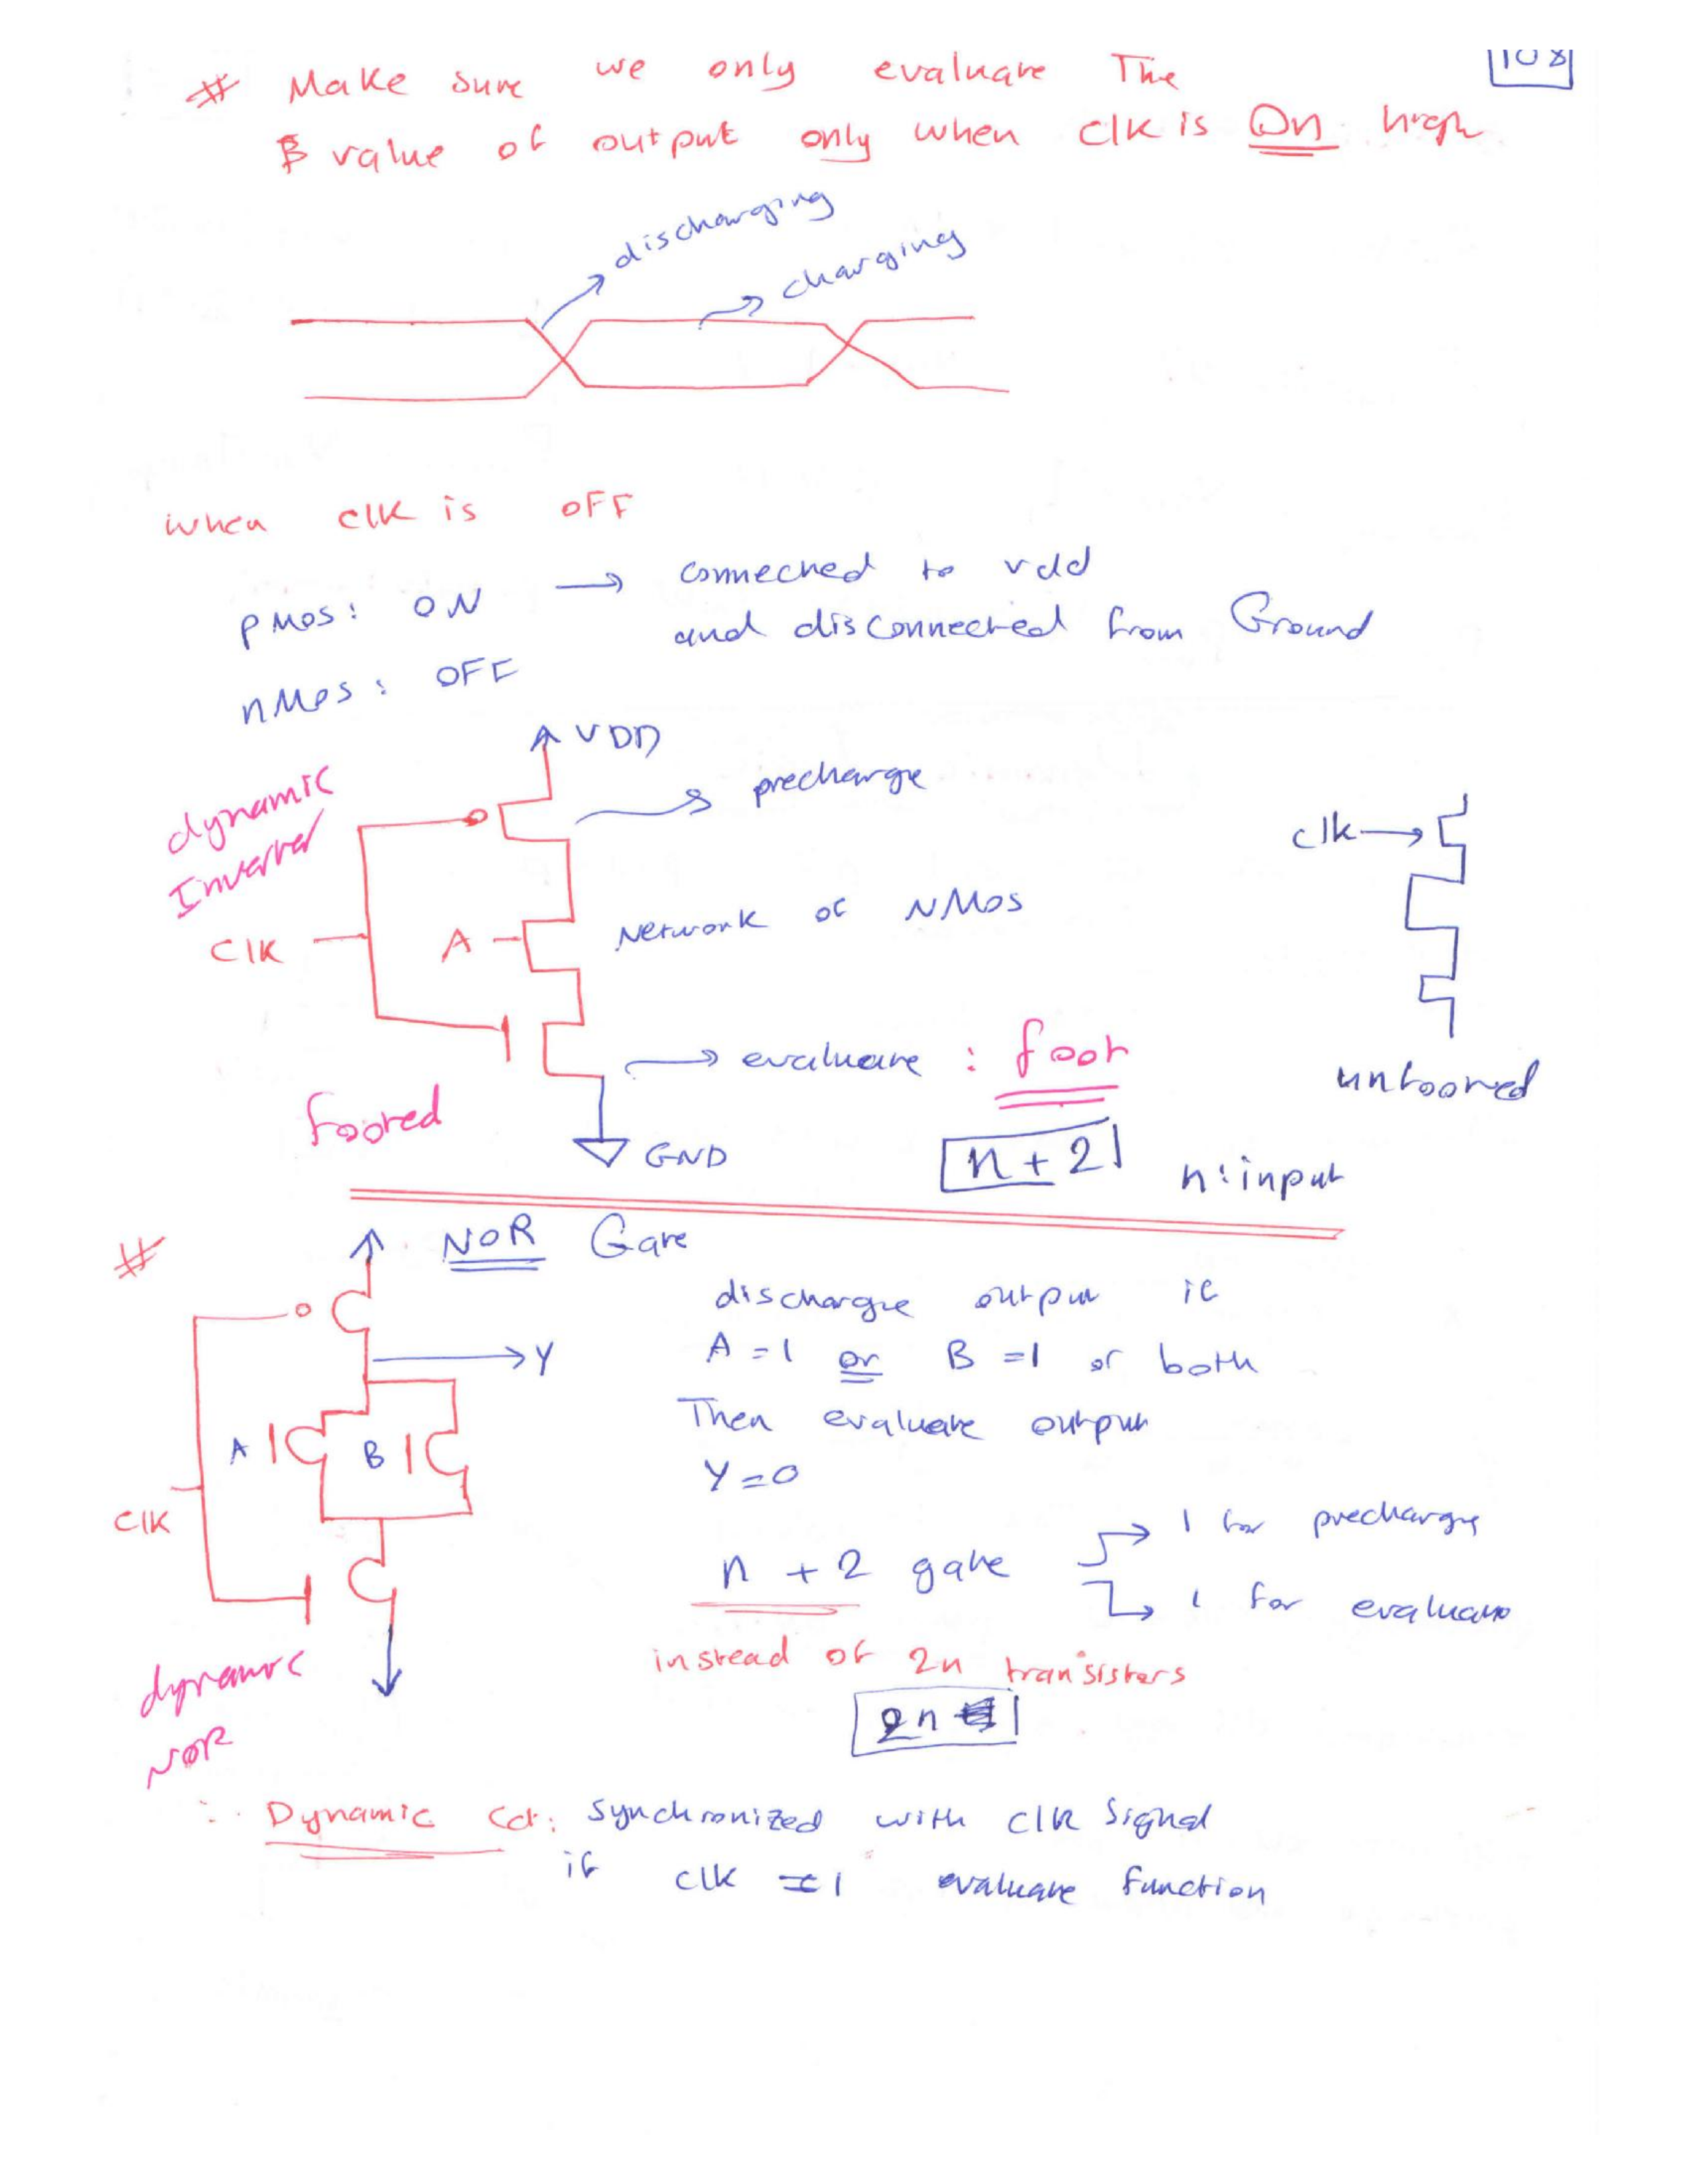 108
# Make sure we only evaluate The
value of output only when clk is On high
discharging
charging
when clk is OFF
PMOS: ON → connected to vdd
and disconnected from Ground
nMos: OFF
VDD
precharge
dynamic
Inverter
clk
Network of NMOS
CLK
A
evaluate : foot
unfooted
footed
GND
n+2
n: input
# NOR Gate
discharge output if
Y
A=1 or B=1 or both
Then evaluate output
A
B
Y=0
CLK
n+2 gate
1 for precharge
1 for evaluate
instead of 2n transistors
dynamic
NOR
2n
∴ Dynamic Cct: synchronized with clk signal
if clk = 1 evaluate function